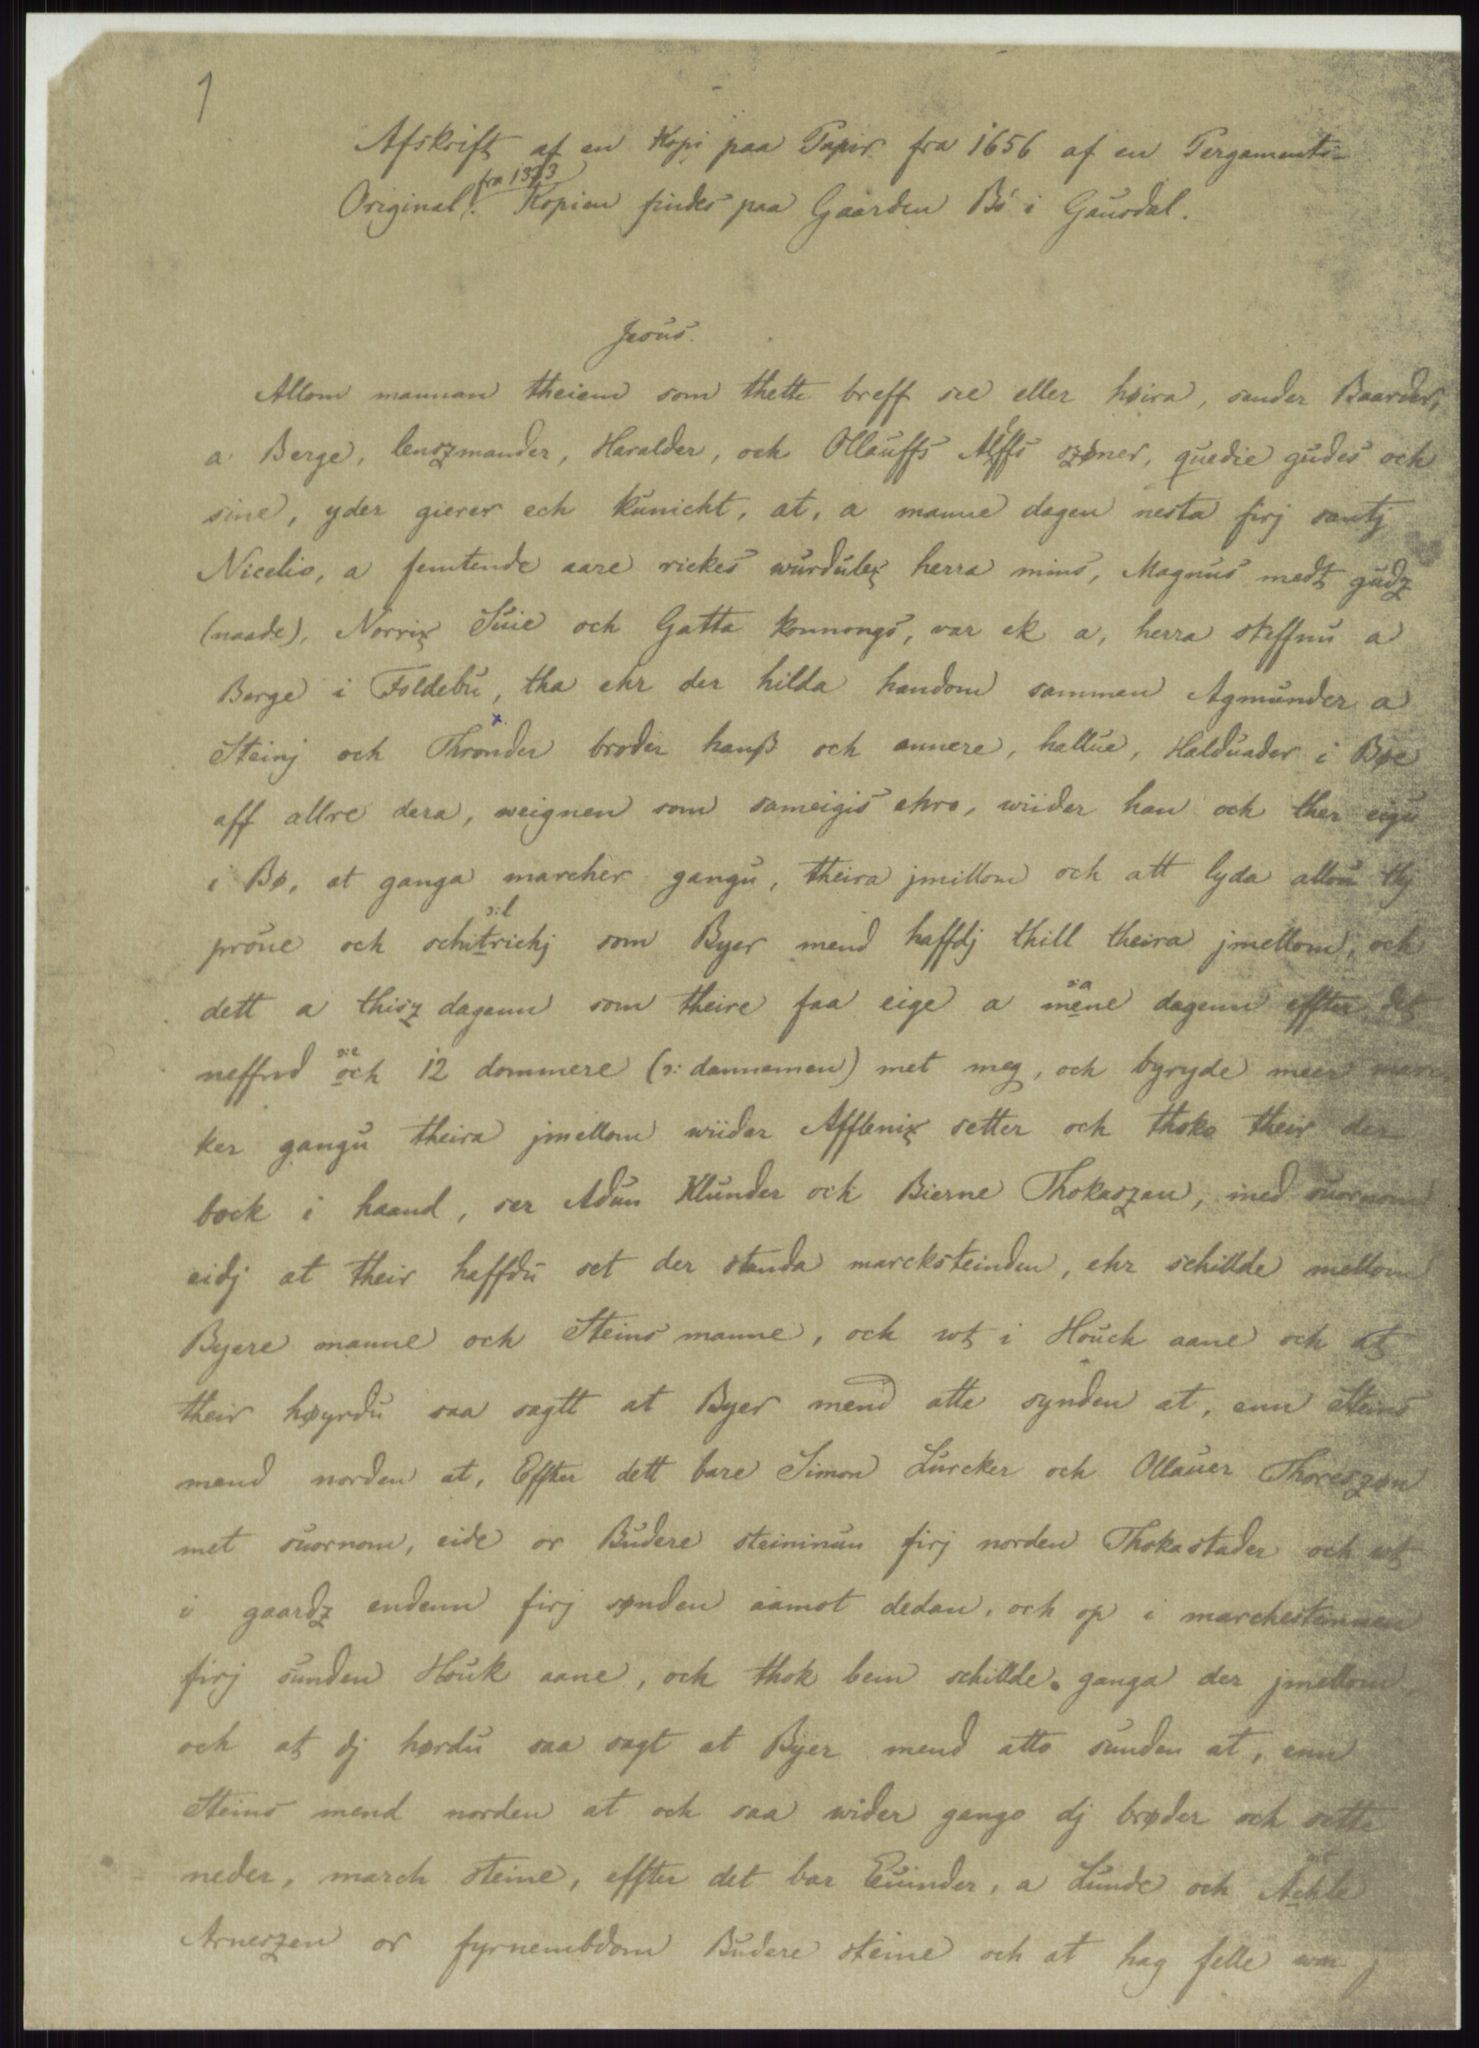 1
Afskrift af en Kopi paa Papir fra 1656 af en Pergaments-
fra 1373
Original. Kopien findes paa Gaarden Bö i Gausdal.
Jesus.
Allom mannan theiem som thette breff see eller høira, sander Baarder,
a Berge, lenszmander, Haralder, och Ollauffs Alffs szøner, quedie gudes och
sine, yder gierer ech kunicht, at, a manne dagen nesta firj santj
Nicelio, a femtende aare rickes wurdulez herra mins, Magnus medt gudz
(naade), Norriz Suie och Gatta konnongs, var ek a, herra steffnu a
Berge i Foldebu, tha ehr der hilda handom sammen Agmunder a
Steinj och Thronder broder hanß och annere, hallue, Halduader i Bøe
aff allre dera, weignen som sameigis ehro, wiider han och ther eigu
i Bø, at ganga marcher gangu, theira jmillom och att lyda allou thj
prøue och schitrichj som Byer mend haffdj thill theira jmellom, och
ɔ: l
dett a thisz dagenn som theire faa eige a mene dagenn effter det
ɔ: a
neffnd och 12 dommere (ɔ: dannemen) met meg, och byryde meer marc
ɔ: e
ker gangu theira jmellom wiider Affleniz setter och thoke their der
bock i haand, ser Adun Klunder och Bierne Thokaszan, med suornom
eidj at their haffdu set der standa marcksteinden, ehr schillde mellom
Byere manne och Steins manne, och wt i Houch aane och at
their høyrdu saa sagtt at Byer mend atte synden at, enn Steins
mend norden at, Effter dett bare Simon Lurcker och Ollauer Thoreszøn
met suornom, eide or Budere steininun firj norden Thokastader och wt
i gaardz endenn firj sønden aamot dedan, och op i marchesteinnen
firj sunden Houk aane, och thok bein schillde ganga der jmellom,
och at dj hørdu saa sagt at Byer mend atto sunden at, enn
Steins mend norden at och saa wider gango dj brøder och sette
neder, march steine, effter det bar Euinder, a Lunde och Achle
Arneszen or fyrnembdom Budere steine och at hag felle war j